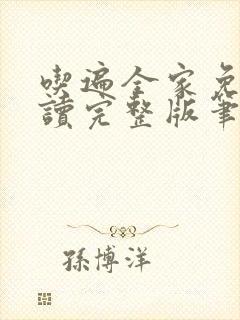 喫遍全家免
讀完整版筆
孫博洋